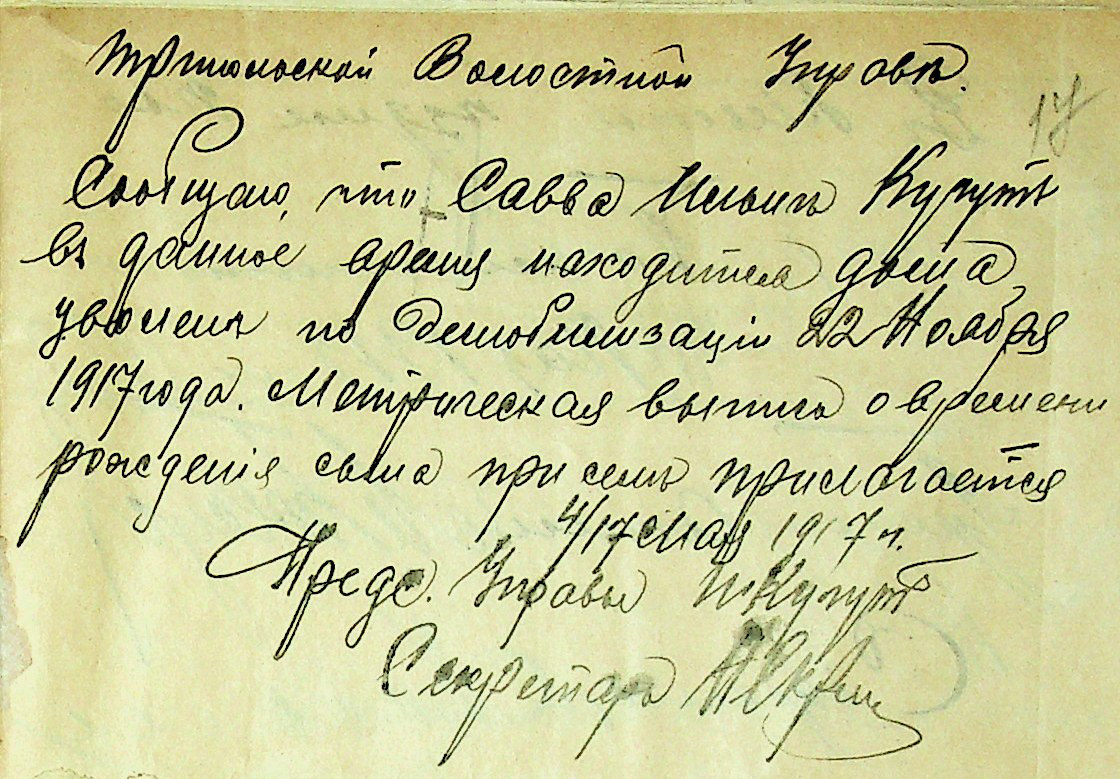 Волостной Управѣ.
17
Сообщаю, что Савва Ильичъ Кугутъ
въ данное время находится дома,
уволенъ по демобилизаціи 22 Ноября
1917 года. Метрическая выпись о времени
рожденія сына при семъ прилагается
4/17 Мая 1917 г.
Предс. Управы Кугутъ
Секретарь